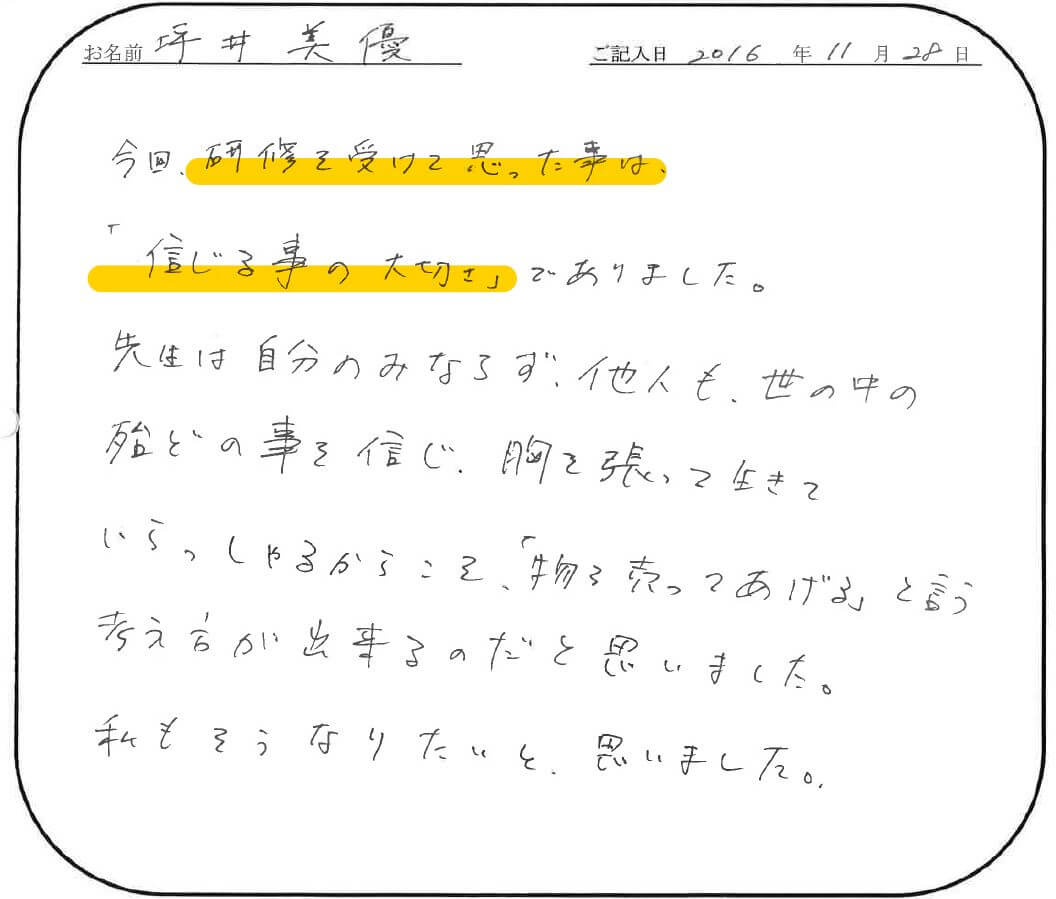 お名前 坪井 美優 ご記入日 2016 年 11 月 28 日
今回、研修を受けて思った事は、
「信じる事の大切さ」でありました。
先生は自分のみならず、他人も、世の中の
殆どの事を信じ、胸を張って生きて
いらっしゃるからこそ、「物を売ってあげる」と言う
考え方が出来るのだと思いました。
私もそうなりたいと、思いました。